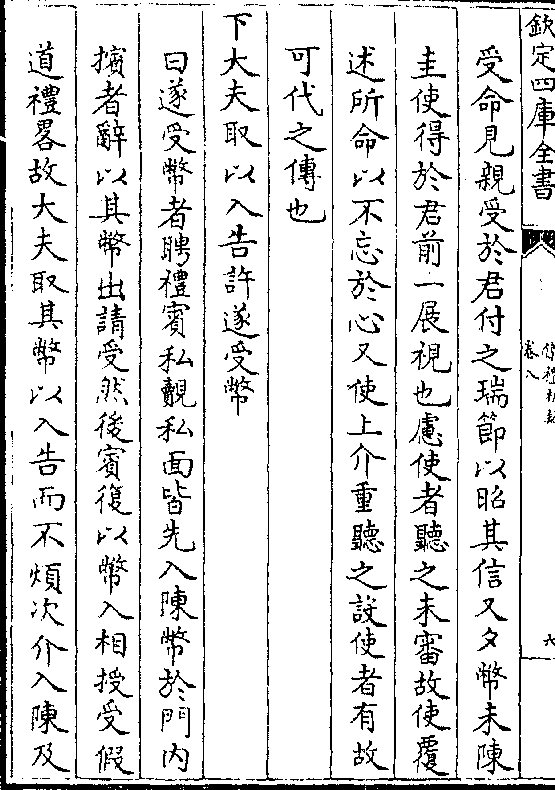 欽定四庫全書
卷八
六
受命見親受於君付之瑞節以昭其信又夕幣未陳
圭使得於君前一展視也慮使者聽之未審故使覆
述所命以不忘於心又使上介重聽之設使者有故
可代之傳也
下大夫取以入告許遂受幣
曰遂受幣者聘禮賓私覿私面皆先入陳幣於門内
擯者辭以其幣出請受然後賓復以幣入相授受假
道禮畧故大夫取其幣以入告而不煩次介入陳及